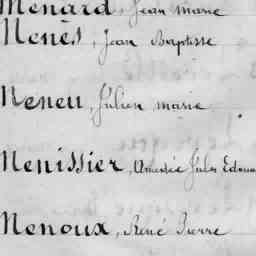 Menard, Jean marie
Menès, Jean Baptiste
Meneu, Julien marie
Menissier, Amédée Jules Edoua
Menoux, René Pierre